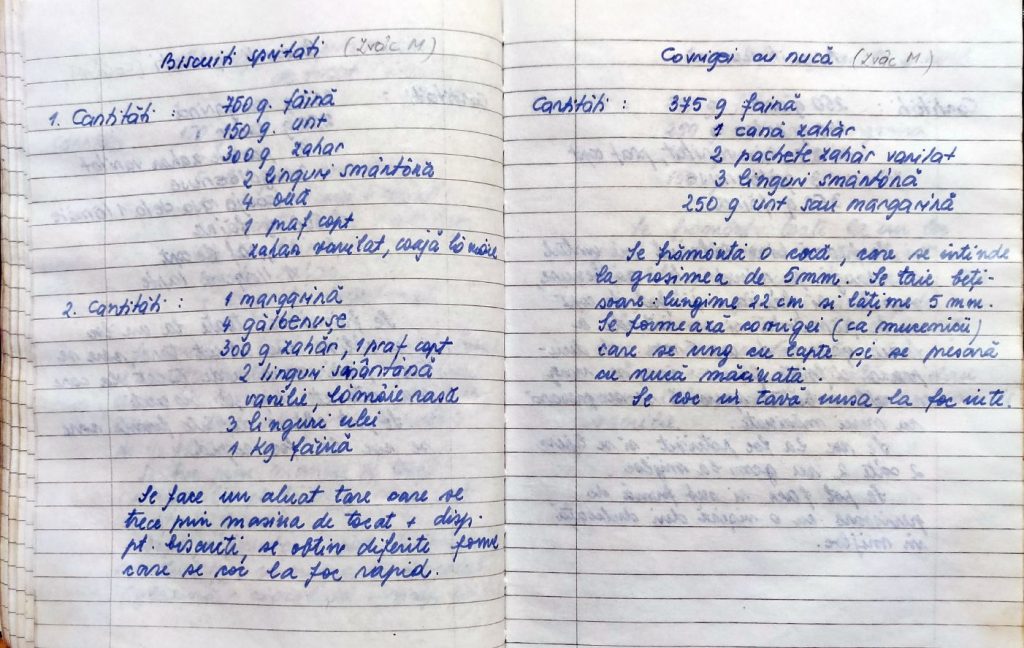 Biscuiti spritati (Zvâc M)
1. Cantităti : 750 g. făină
150 g. unt
300 g zahar
2 linguri smântână
4 ouă
1 praf copt
zahar vanilat, coajă lămâie
2. Cantităti : 1 margarină
4 gălbenușe
300 g zahăr, 1 praf copt
2 linguri smântână
vanilie, lămâie rasă
3 linguri ulei
1 kg făină
Se face un aluat tare care se
trece prin masina de tocat + disp.
pt. biscuiti, se obtin diferite forme
care se coc la foc rapid.
Covrigei cu nucă (Zvâc M)
Cantităti : 375 g faină
1 cană zahăr
2 pachete zahăr vanilat
3 linguri smântână
250 g unt sau margarină
Se frământă o cocă, care se intinde
la grosimea de 5mm. Se taie beți-
soare : lungime 22 cm si lățime 5 mm.
Se formează covrigei (ca mucenicii)
care se ung cu lapte și se presară
cu nucă măcinată.
Se coc in tavă unsă, la foc iute.